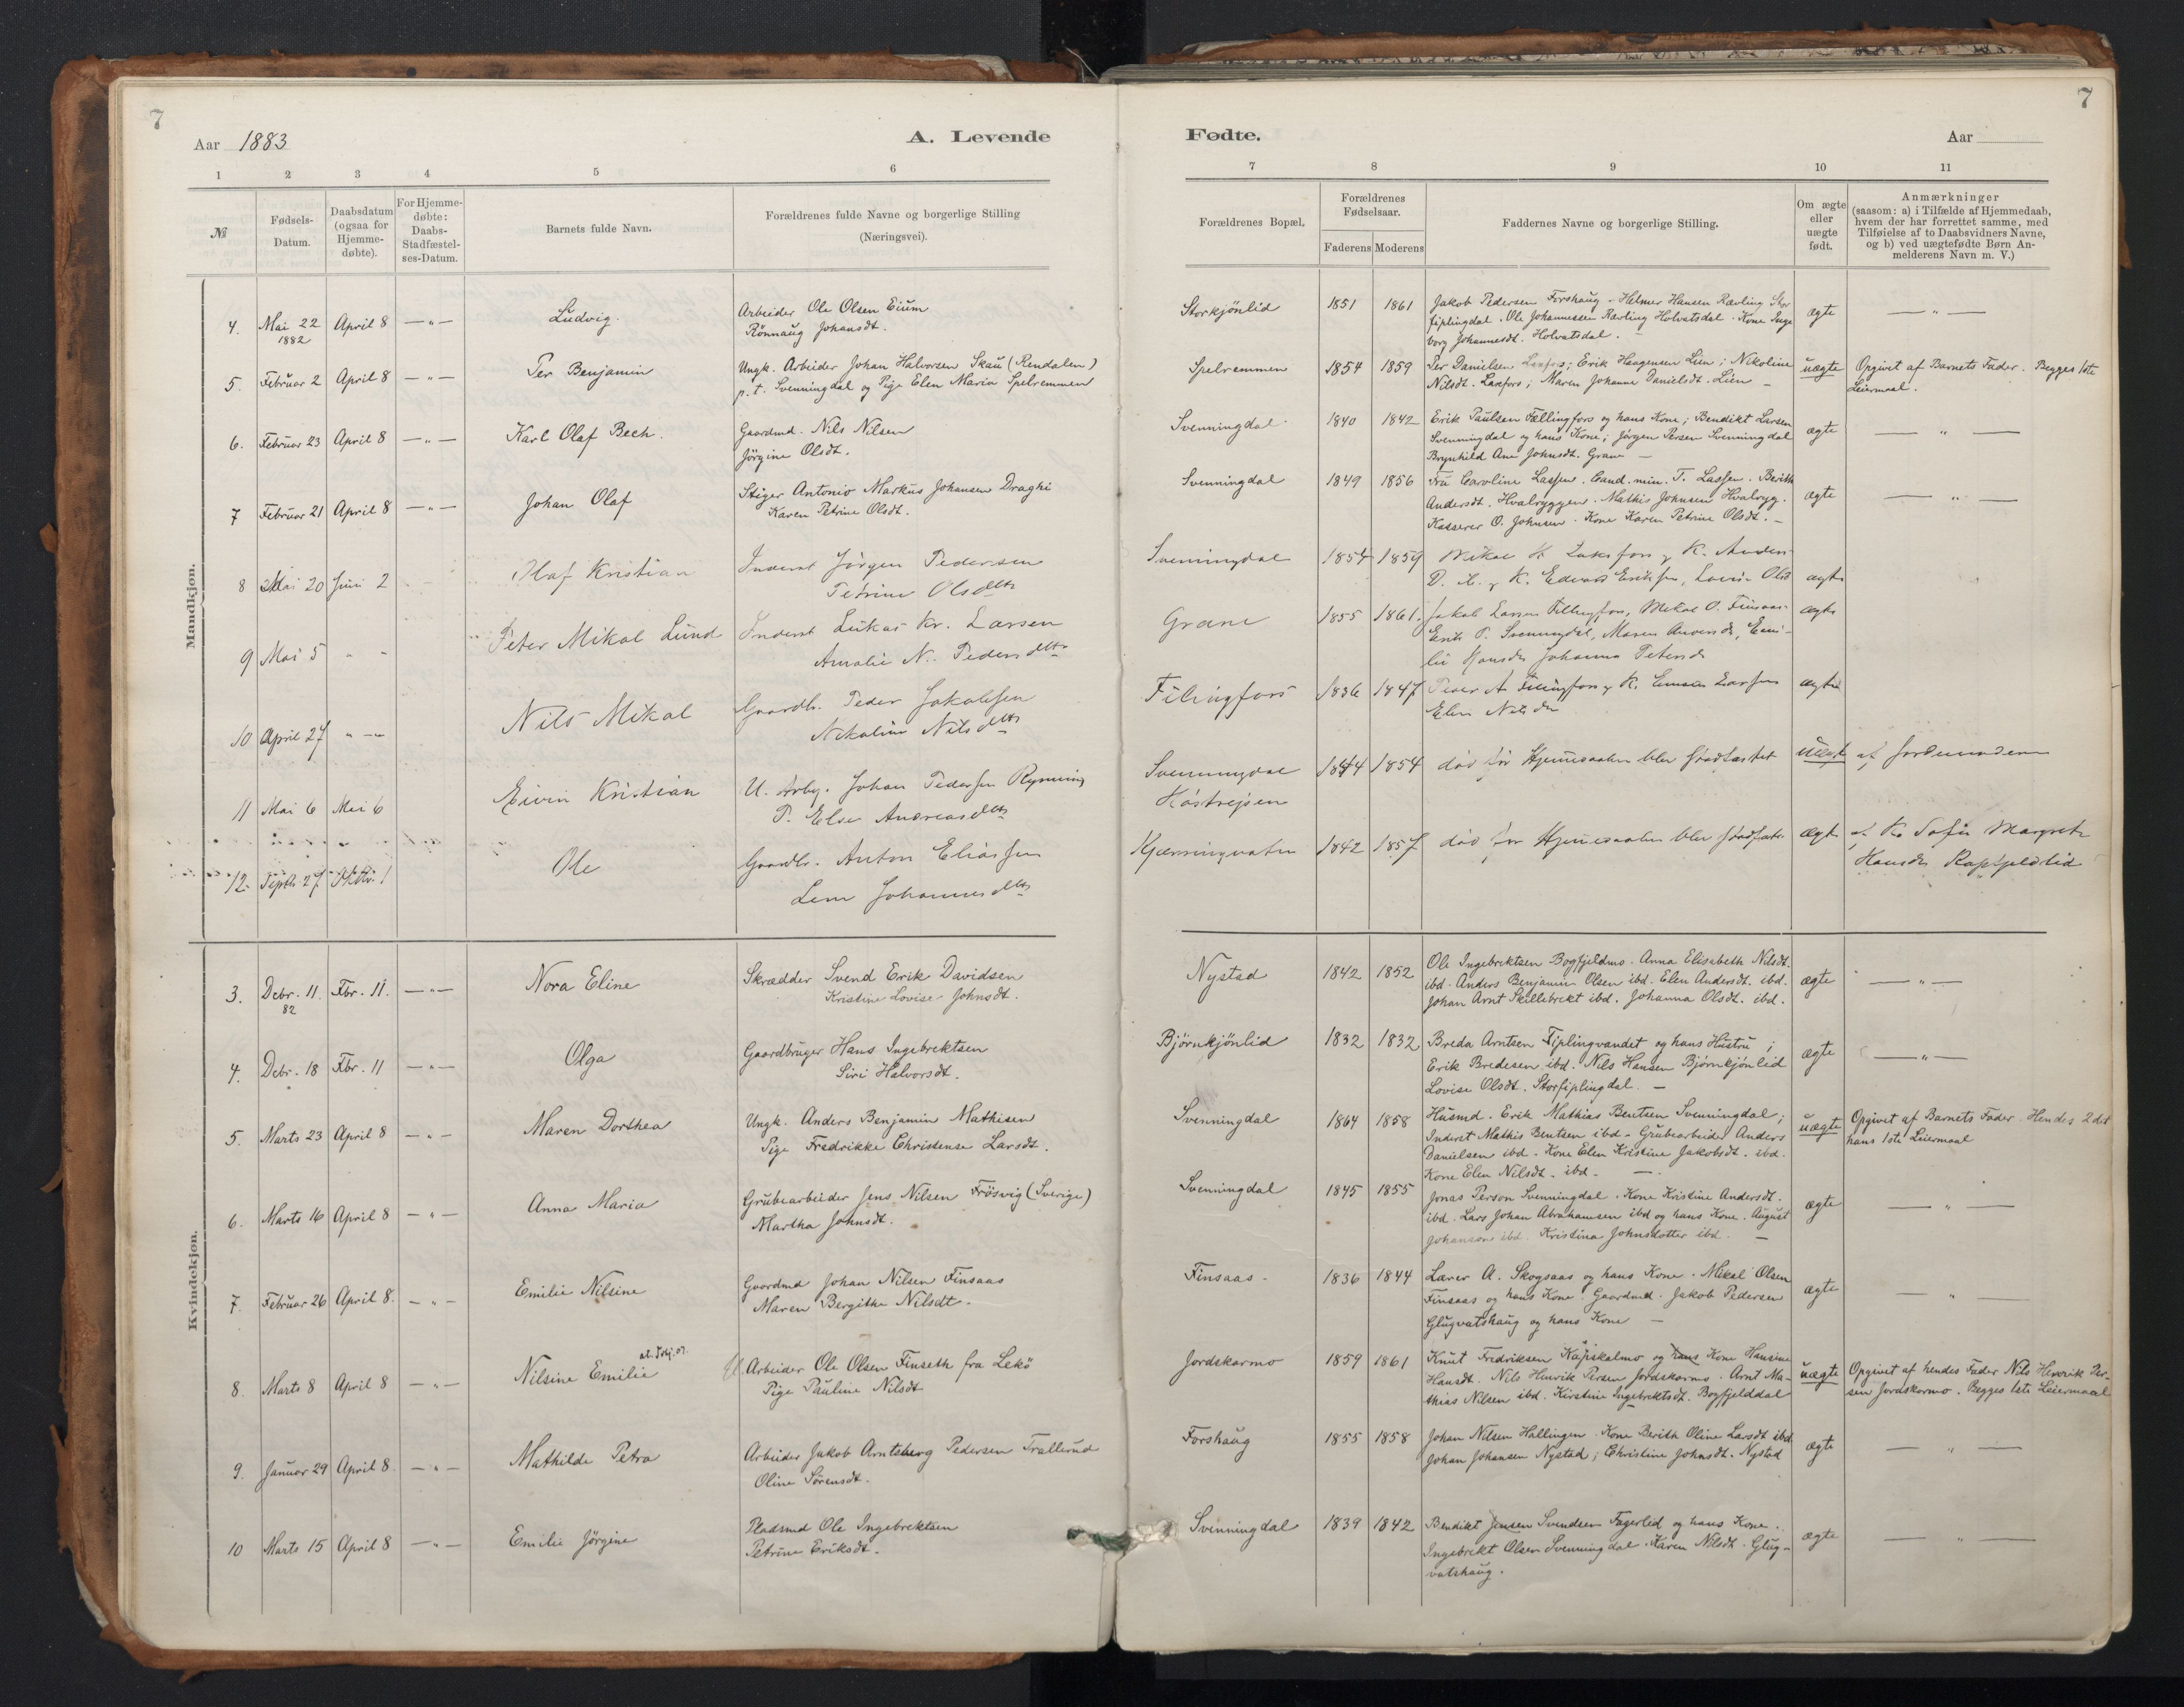 7
Aar 1883
A. Levende
1 2 3 4 5 6
№
Fødsels-Datum.
Daabsdatum (ogsaa for Hjemme-døbte).
For Hjemme-døbte: Daabs-Stadfæstel-ses-Datum.
Barnets fulde Navn.
Forældrenes fulde Navne og borgerlige Stilling
(Næringsvei).
Mandkjøn.
4. Mai 22 April 8 — „ — Ludvig. Arbeider Ole Olsen Eium
1882 Rönnaug Johansdt.
5. Februar 2 April 8 — „ — Per Benjamin Ungk. Arbeider Johan Halvorsen Skau (Rendalen)
p. t. Svenningdal og Pige Elen Maria Spelremmen
6. Februar 23 April 8 — „ — Karl Olaf Bech. Gaardmd. Nils Nilsen
Jörgine Olsdt.
7 Februar 21 April 8 — „ — Johan Olaf Stiger Antonio Markus Johansen Draghi
Karen Petrine Olsdt.
8 Mai 20 Juni 2 Olaf Kristian Inderst Jørgen Pedersen
Petrine Olsdtr
9 Mai 5 „ „ Peter Mikal Lund Inderst Lukas Kr. Larsen
Amalie N. Pedersdtr
10 April 27 „ — Nils Mikal Gaardb. Peder Jakobsen
Nikoline Nilsdtr
11 Mai 6 Mai 6 Eivin Kristian U. Arby. Johan Pedersen Rynning
P. Else Andreasdtr
12. Septb. 27 Oktbr. 1 Ole Gaardb. Anton Eliassen
Lene Johannesdtr
Kvindekjøn.
3. Debr. 11. Fbr. 11. — „ — Nora Eline Skrædder Svend Erik Davidsen
82 Kristine Lovise Johnsdt.
4. Debr. 18 Fbr. 11 — „ — Olga Gaardbruger Hans Ingebrektsen
„ Siri Halvorsdt.
5. Marts 23 April 8 — „ — Maren Dorthea Ungk. Anders Benjamin Mathisen
Pige Fredrikke Christense Larsdt.
6. Marts 16 April 8 — „ — Anna Maria Grubearbeider Jens Nilsen Frösvig (Sverige)
Martha Johnsdt.
7. Februar 26 April 8. — „ — Emilie Nilsine Gaardmd Johan Nilsen Finsaas
Maren Bergithe Nilsdt.
8. Marts 8 April 8 — „ — Nilsine Emilie U. Arbeider Ole Olsen Finseth fra Lekö
Pige Pauline Nilsdt
9. Januar 29 April 8 — „ — Mathilde Petra Arbeider Jakob Arntsberg Pedersen Trallerud
Oline Sørensdt.
10 Marts 15 April 8 — „ — Emilie Jörgine Pladsmd Ole Ingebrektsen
Petrine Eriksdt.
7
Fødte.
Aar
7 8 9 10 11
Forældrenes Bopæl.
Forældrenes Fødselsaar.
Faderens Moderens
Faddernes Navne og borgerlige Stilling.
Om ægte eller uægte født.
Anmærkninger
(saasom: a) i Tilfælde af Hjemmedaab,
hvem der har forrettet samme, med
Tilføielse af to Daabsvidners Navne,
og b) ved uægtefødte Børn An-
melderens Navn m. V.)
Storkjönlid 1851 1861 Jakob Pedersen Forshaug. Helmer Hansen Rævling Stor ægte — „ —
fiplingdal. Ole Johannessen Rævling Holvatsdal. Kone Inge
borg Johannesdt. Holvatsdal.
Spelremmen 1854 1859 Per Danielsen Laxfors; Erik Haagensen Lien; Nikoline uægte Opgivet af Barnets Fader. Begges 1ste
Nilsdt. Laxfors; Maren Johanne Danielsdt. Lien — Leiermaal.
Svenningdal 1840 1842 Erik Paulsen Fællingfors og hans Kone; Bendikt Larsen ægte — „ —
Svenningdal og hans Kone; Jörgen Persen Svenningdal
Brynhild Ane Johnsdt. Grane —
Svenningdal 1849 1856 Fru Caroline Lassen. Cand. min. T. Lassen. Berith ægte — „ —
Andersdt. Hvalryggen. Mathis Johnsen Hvalryg.
Kasserer O. Johnsen. Kone Karen Petrine Olsdt. —
Svenningdal 1854 1859 Mikal H. Laksfors K. Anders ægte
K. Edvard Eriksen,
Grane 1855 1861. Jakob Larsen Fellingfors, Mikal O. Finsaas ægte
Erik P. Svenningdal, Maren Andersdr,
Hansdr Johanna Petersdr
Filingfors 1836 1847 Peder A Fillingfors K. Larsen ægte
Elen Nilsdr
Svenningdal 1844 1854 död för Hjemmedaaben blev stadfæstet uægte af Jordemoderen
Kjærringvatn 1842 1857 död för Hjemmedaaben blev stadfæst ægte af K. Sofie Margrete
Hansdr Rapfjeldlid
Nystad 1842 1852 Ole Ingebrektsen Bogfjeldmo. Anna Elisabeth Nilsdt. ægte — „ —
ibd. Anders Benjamin Olsen ibd. Elen Andersdt. ibd.
Johan Arnt Skillebrekt ibd. Johanna Olsdt. ibd.
Bjørnkjönlid 1832 1832 Breda Arntsen Fiplingvandet og hans Hustru; ægte — „ —
Erik Bredesen ibd. Nils Hansen Bjørnkjönlid
Lovise Olsdt. Storfiplingdal. —
Svenningdal 1864 1858 Husmd. Erik Mathias Bentsen Svenningdal; uægte Opgivet af Barnets Fader. Hendes 2det
Inderst Mathis Bentsen ibd. Grubearbeider Anders hans 1ste Leiermaal
Danielsen ibd. Kone Elen Kristine Jakobsdt. ibd.
Kone Elen Nilsdt. ibd. —
Svenningdal 1845 1855 Jonas Person Svenningdal. Kone Kristine Andersdt. ægte — „ —
ibd. Lars Johan Abrahamsen ibd og hans Kone. August
Johanson ibd. Kristina Johnsdotter ibd. —
Finsaas. 1836 1844 Lærer A. Skogsaas og hans Kone. Mikal Olsen ægte — „ —
Finsaas og hans Kone. Gaardmd. Jakob Pedersen
Glugvatshaug og hans Kone —
Jordskarmo 1859 1861 Knut Fredriksen Kapskalmo og hans Kone Hansine uægte Opgivet af hendes Fader Nils Henrik Per-
Hansdt. Nils Henrik Persen Jordskarmo. Arnt Ma- sen Jordskarmo. Begges 1ste Leiermaal
thias Nilsen ibd. Kirstine Ingebrektsdt. Bogfjelddal
Forshaug 1855 1858 Johan Nilsen Hallingen. Kone Berith Oline Larsdt ibd. ægte — „ —
Johan Johansen Nystad; Christine Johnsdt. Nystad
Svenningdal 1839 1842 Bendikt Jensen Svendsen Fagerlid og hans Kone. ægte — „ —
Ingebrikt Olsen Svenningdal. Karen Nilsdt. Glug-
vatshaug.